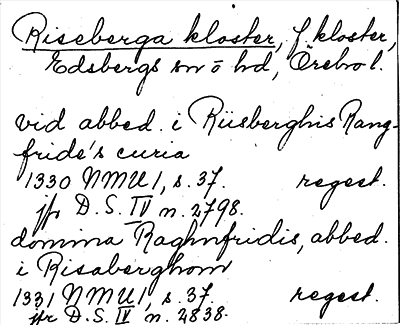 Riseberga kloster, f. kloster,
Edsbergs sn o hd, Örebro l.
vid abbed. i Riisberghis Rang-
fride's curia
1330 NMU 1, s. 37. regest.
jfr D. S. IV n. 2798.
domina Raghnfridis, abbed.
i Risaberghom
1331 NMU 1, s. 37. regest.
jfr D. S. IV n. 2838.